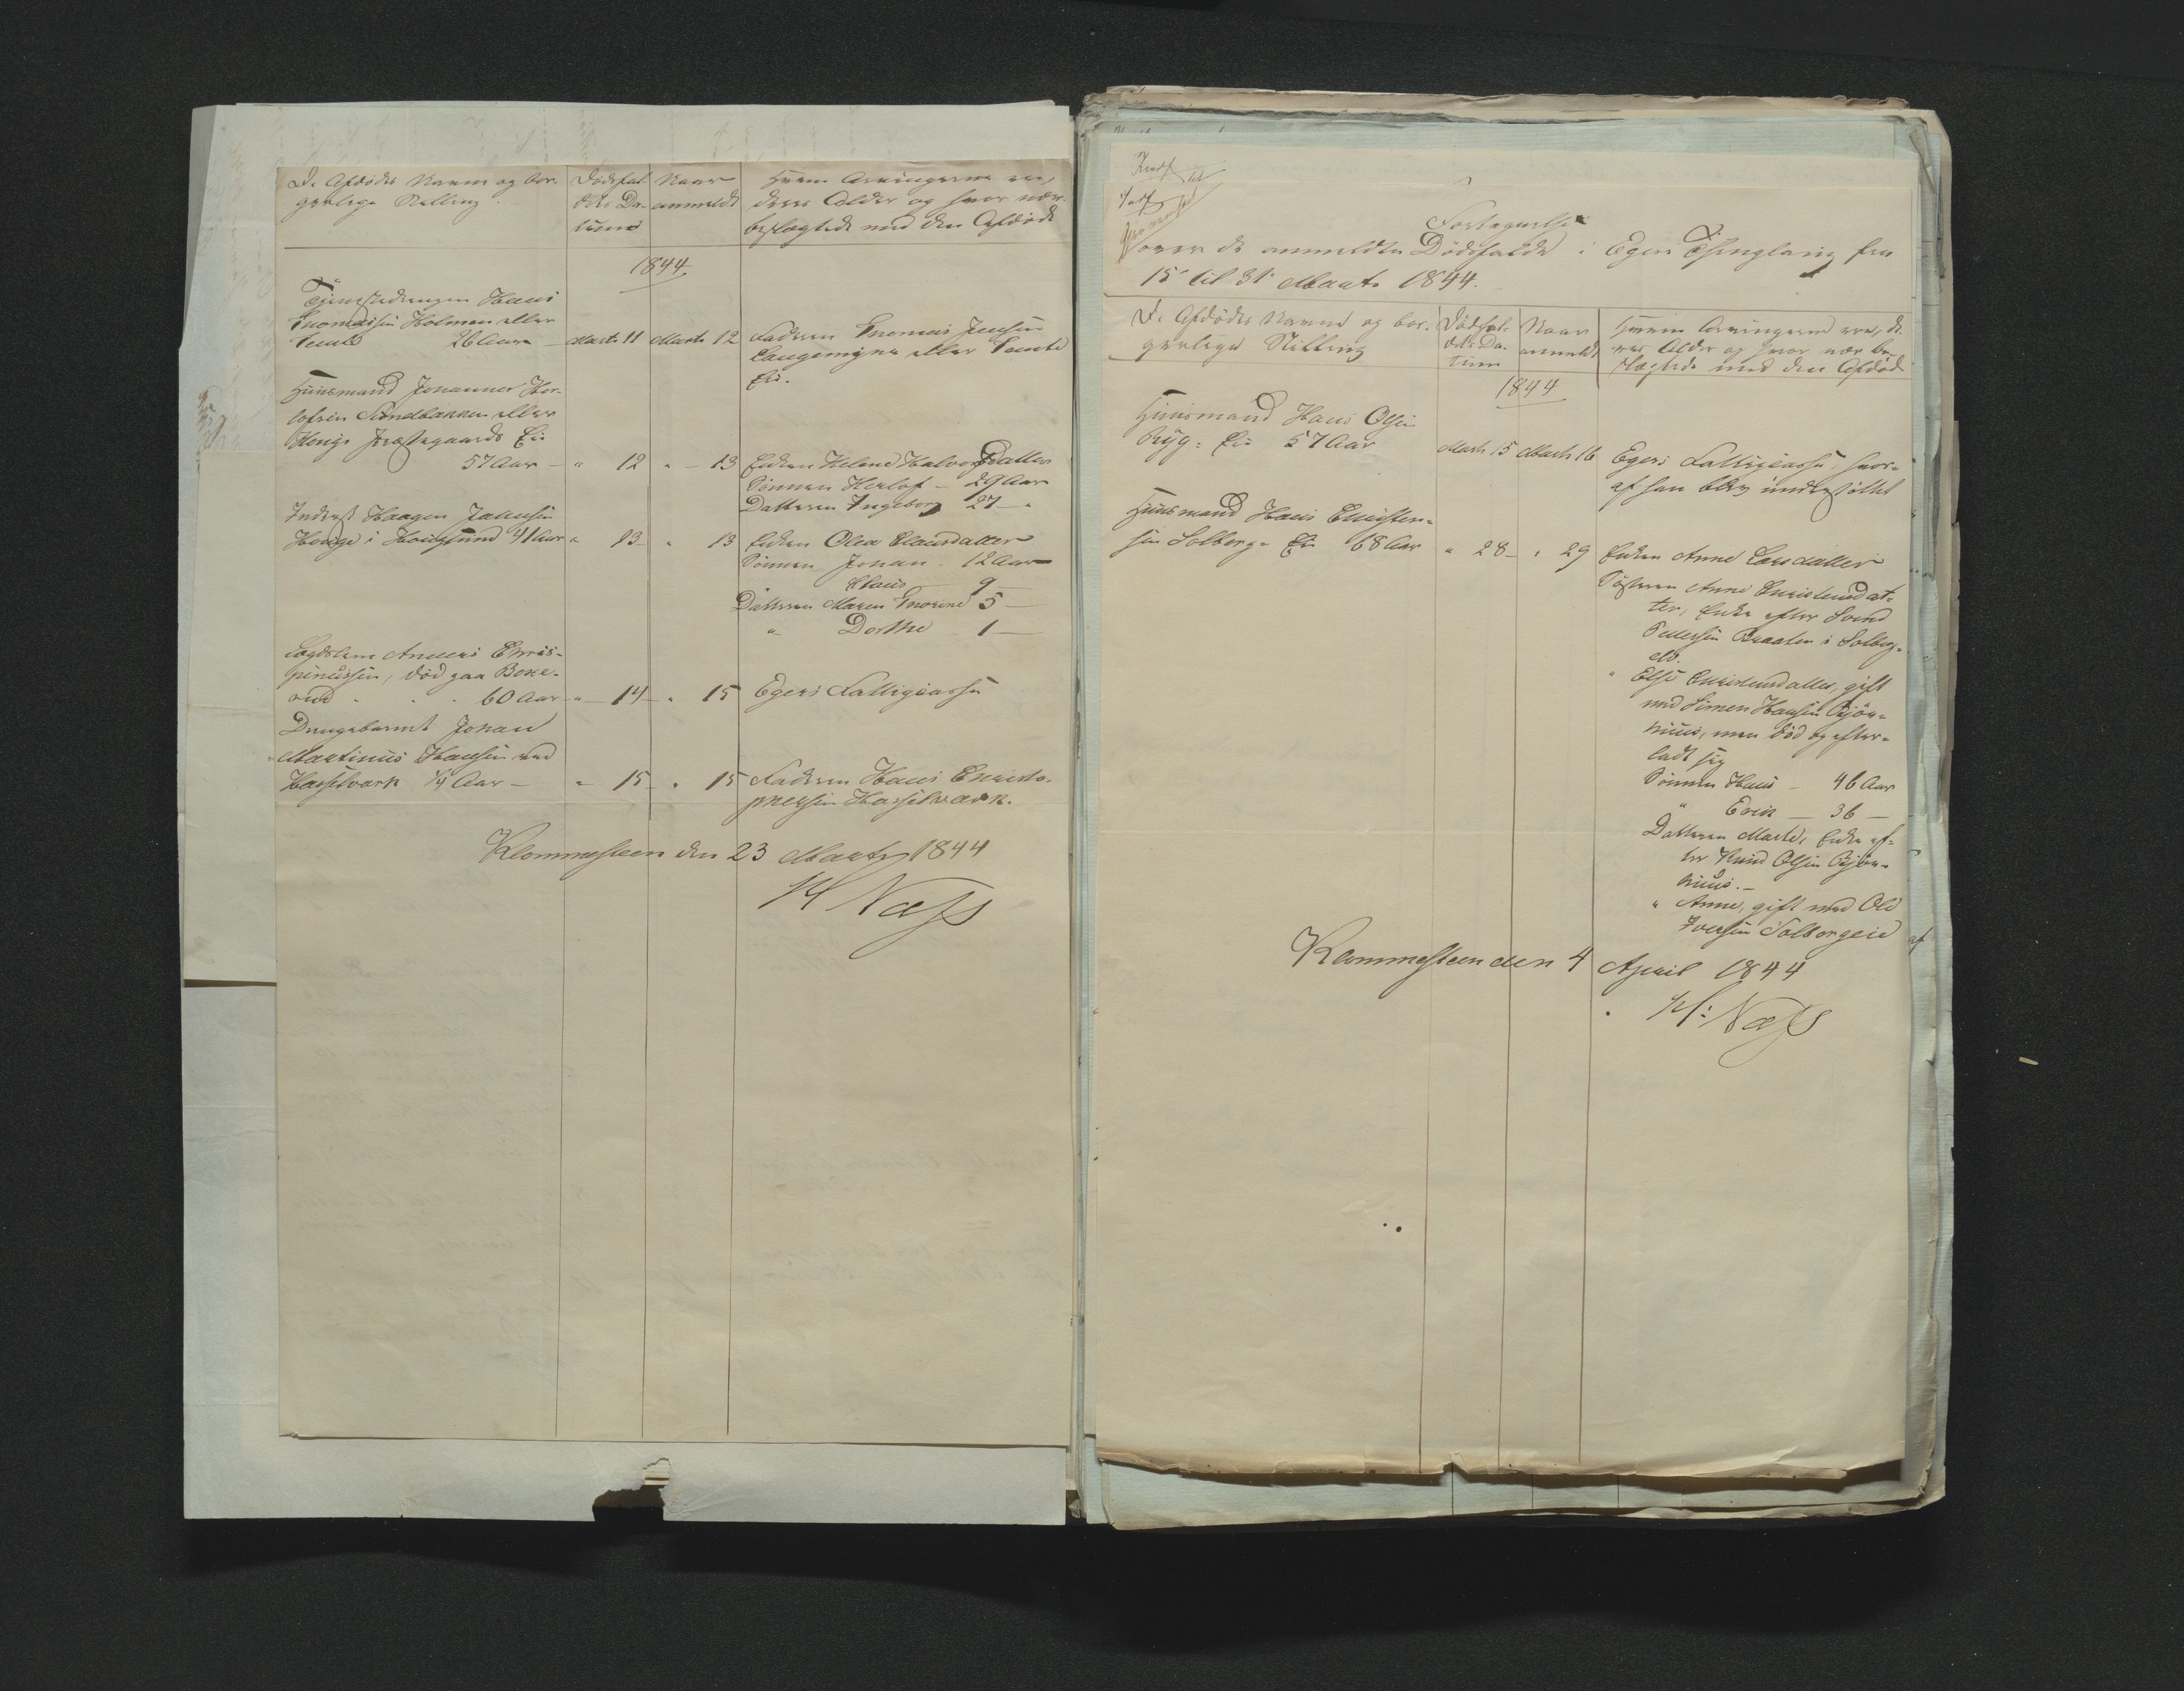 De Afdødes Navne og bor-
gerlige Stilling
Dødsfal-
dets Da-
tum
Naar
anmeldt
Hvem Arvingerne ere,
deres Alder og hvor nær
beslægtede med den Afdøde
1844
Tjenestedrengen Hans
Thomassen Holmen eller
Temte 26 Aar — Marts 11 Marts 12 Faderen Thomas Jensen
Langemyr eller Temte
Eie.
Huusmand Johannes Her-
lofsen Sandbakken eller
Hougs Præstegaards Eie
57 Aar — " 12 " — 13 Enken Helene Halvorsdatter
Sønnen Herlof — 29 Aar
Datteren Ingeborg 27 — "
Inderst Haagen Jensen
Houge i Hougsund 41 Aar " 13 — " 13 Enken Olea Clausdatter
Sønnen Johan — 12 Aar
" Claus — 9 —
Datteren Maren Thorine 5 —
" Dorthe — 1 —
Lægdslem Anders Chris-
pinussen, død paa
60 Aar — " — 14 — " 15 Egers Fattigcasse
Drengebarnet Johan
Martinus Hansen ved
Hasselværk ¼ Aar — " — 15 — " 15 Faderen Hans Christo-
phersen Hasselværk.
Klommesteen den 23 Marts 1844
H Næss
Fortegnelse
over de anmeldte Dødsfalde i Egers Thinglaug fra
15de til 31te Marts 1844.
De Afdødes Navne og bor-
gerlige Stilling
Dødsfal-
dets Da-
tum
Naar
anmeldt
Hvem Arvingerne ere, de-
res Alder og hvor nær be-
slægtede med den Afdøde
1844
Huusmand Hans Olsen
Ryg- Eie 57 Aar Marts 15 Marts 16 Egers Fattigcasse, hvor-
af han blev understøttet
Huusmand Hans Christen-
sen Solberg- Eie 68 Aar " 28 — " 29 Enken Anne Larsdatter
Søsteren Anne Christensdat-
ter, Enke efter Svend
Pedersen Braaten i Solberg-
elv.
" Else Christensdatter, gift
med Simen Hansen Bjøn-
huus, men død og efter-
ladt sig
Sønnen Hans — 46 Aar
" Erik — 36 —
Datteren Marte, Enke ef-
ter Knud Olsen Bjøn-
huus. —
" Anne, gift med Ole
Iversen Solbergeie
Klommesteen den 4 April 1844
H: Næss